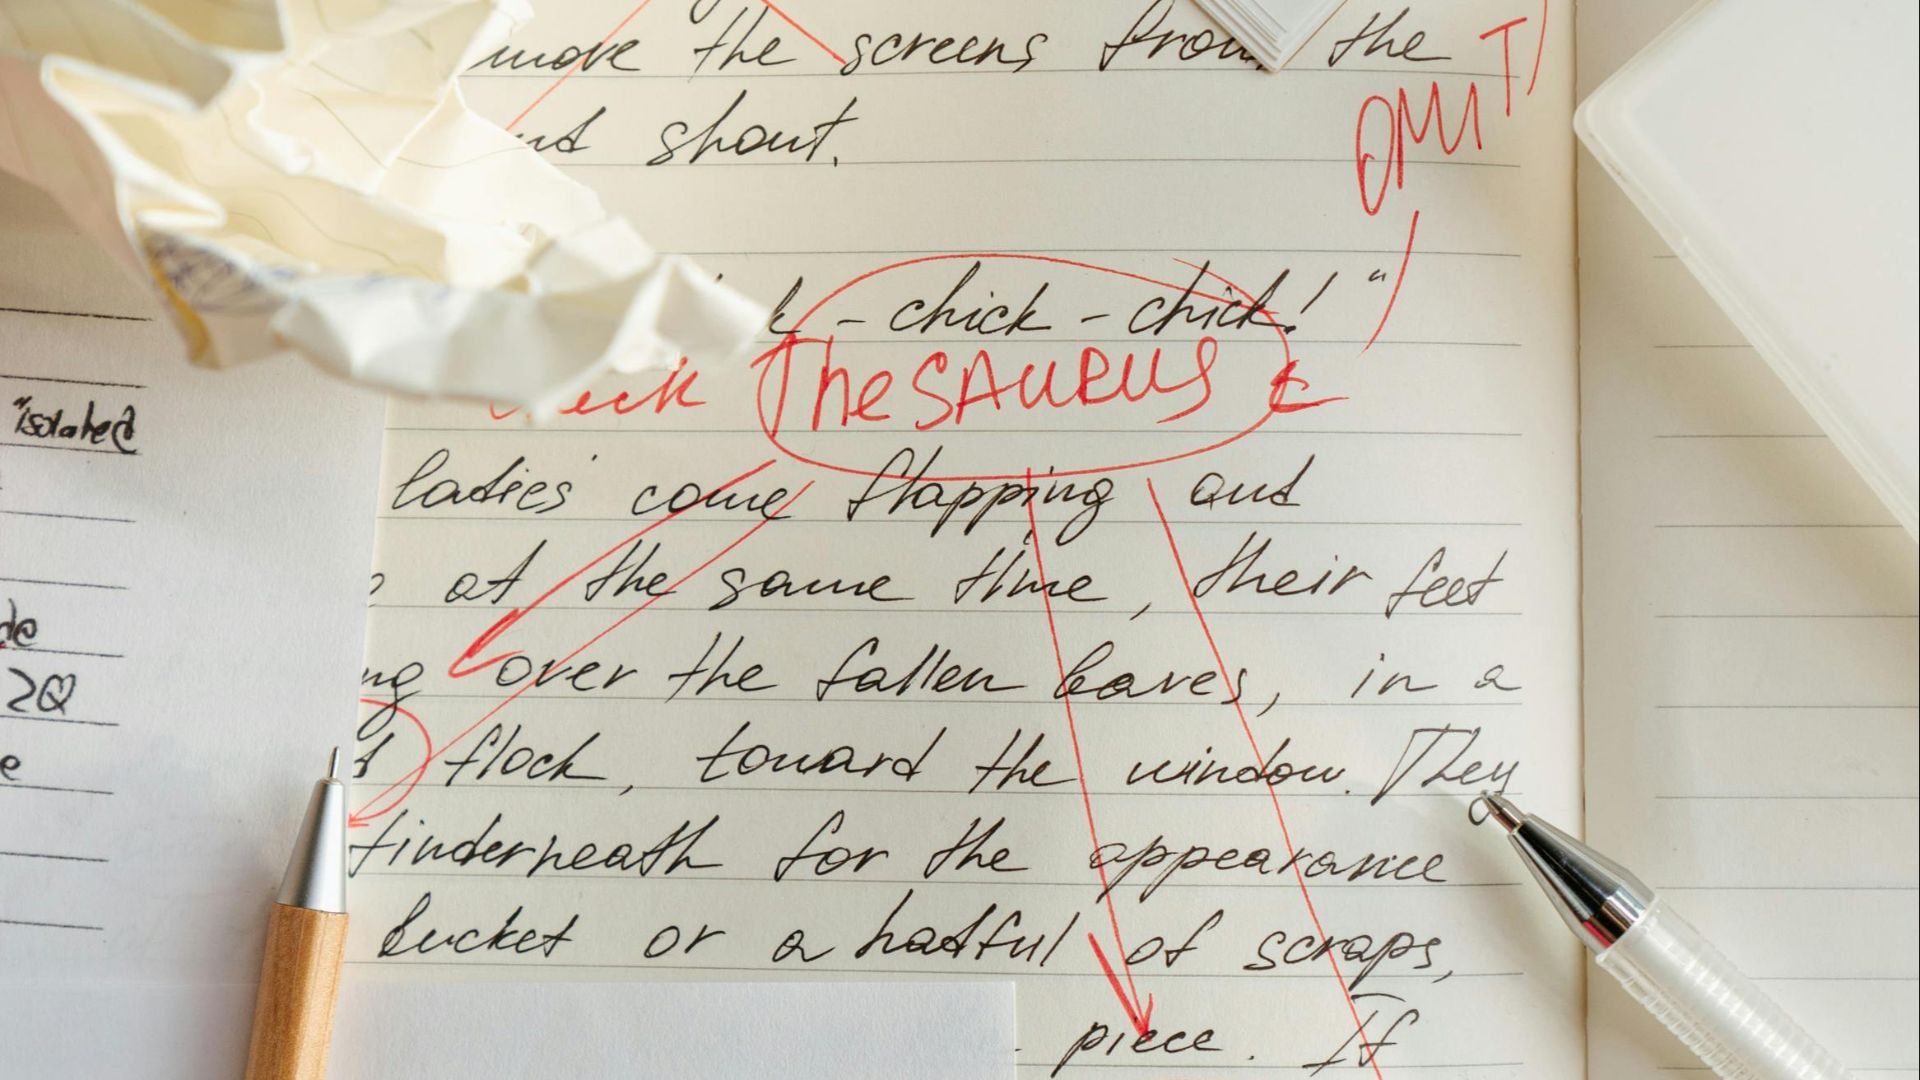 move the screens from the
OMIT
shout.
- chick - chick! "
Thesaurus
ladies come flapping out
at the same time, their feet
over the fallen leaves, in a
flock, toward the window. They
underneath for the appearance
bucket or a hatful of scraps,
piece. If
"isolated
2Q